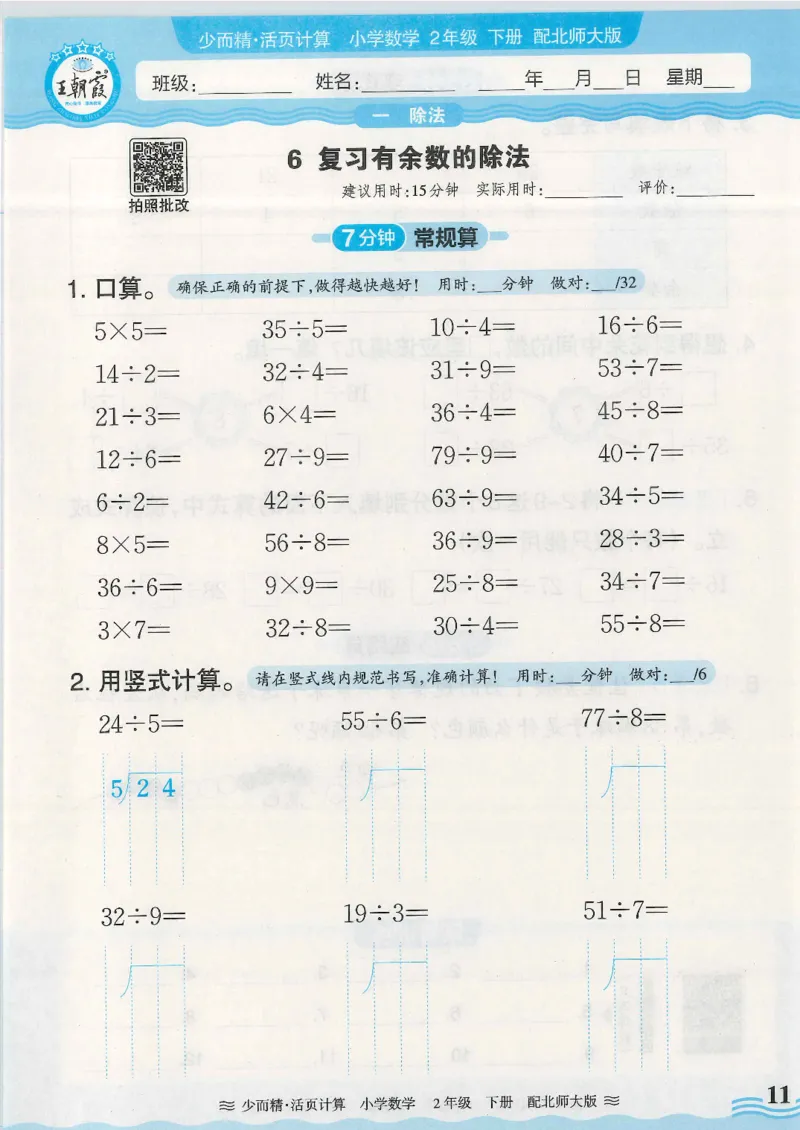 少而精·活页计算 小学数学 2年级 下册 配北师大版
王朝霞
班级:________ 姓名:________ ____年___月___日 星期___
一 除法
拍照批改
6 复习有余数的除法
建议用时:15分钟 实际用时:________ 评价:________
7分钟 常规算
1. 口算。 确保正确的前提下,做得越快越好! 用时:___分钟 做对:___/32
5×5= 35÷5= 10÷4= 16÷6=
14÷2= 32÷4= 31÷9= 53÷7=
21÷3= 6×4= 36÷4= 45÷8=
12÷6= 27÷9= 79÷9= 40÷7=
6÷2= 42÷6= 63÷9= 34÷5=
8×5= 56÷8= 36÷9= 28÷3=
36÷6= 9×9= 25÷8= 34÷7=
3×7= 32÷8= 30÷4= 55÷8=
2. 用竖式计算。 请在竖式线内规范书写,准确计算! 用时:___分钟 做对:___/6
24÷5= 55÷6= 77÷8=
5 2 4
32÷9= 19÷3= 51÷7=
少而精·活页计算 小学数学 2年级 下册 配北师大版
11